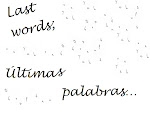 Last
words;
Últimas
palabras...